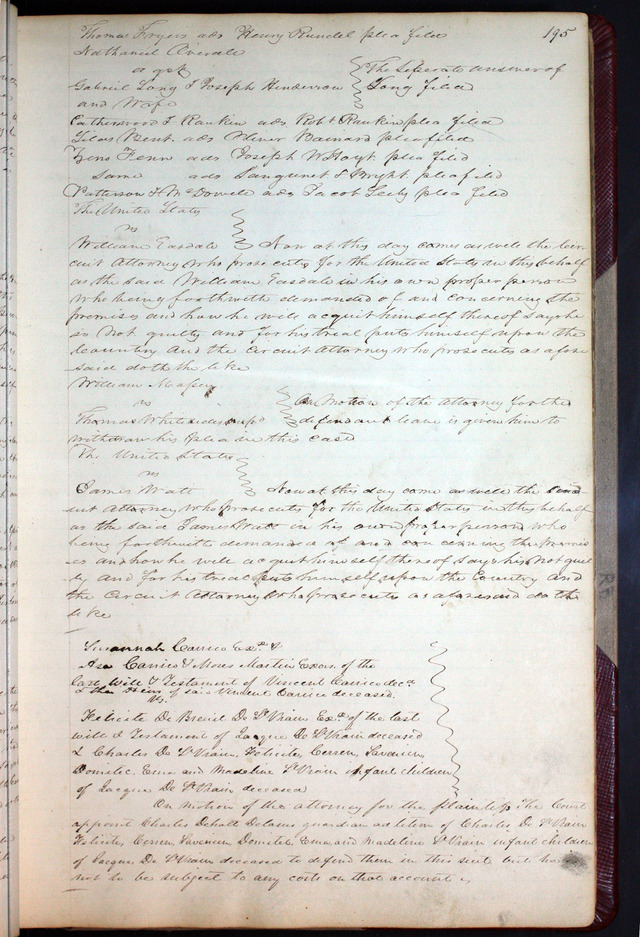 Thomas Fryers ads Henry Rundel plea filed 195
Nathaniel Overale
a gst
Gabriel Long & Joseph Henderson The Seperate answer of
and Wife Long filed
Catherwood & Rankin ads Robt Rankin plea filed
Silas Bent ads Oliver Barnard plea filed
Zeno Fenn ads Joseph W Hoyt plea filed
Same ads Sanguinet & Bright plea filed
Patterson & McDowell ads Jacob plea filed
The United States
vs
William Easdale Now at this day comes as well the Cir
cuit Attorney who prosecutes for the United States in this behalf
as the said William Easdale in his own proper person
who being forthwith demanded of and concerning the
premises and how he will acquit himself thereof says he
is not guilty and for his trial puts himself upon the
Country and the Circuit Attorney who prosecutes as afore
said doth the like
William Massey
vs On Motion of the Attorney for the
Thomas Whitesides defendant leave is given him to
withdraw his plea in this case
The United States
vs
James Watt Now at this day come as well the
uit Attorney who prosecutes for the United States in this behalf
as the said James Watt in his own proper person who
being forthwith demanded of and concerning the premis
es and how he will acquit himself thereof says he is not guil
ty and for his trial puts himself upon the Country and
the Circuit Attorney who prosecutes as aforesaid doth the
like
Susannah Carrico Exx &
Asa Carrico & Moses Martin Exors. of the
last Will & Testament of Vincent Carrico decd
& the Heirs of said Vincent Carrico deceased.
Vs.
Felicite De Breuil De St Vrain Exx of the last
will & Testament of Jacque De St Vrain deceased
& Charles De St Vrain, Felicite, Cerren, Savinien,
Domitec. Emo and Madeline St Vrain infant children
of Jacque De St Vrain deceased
On motion of the attorney for the plaintiffs The Court
appoint Charles Dehalt Delassus guardian ad litem of Charles De St Vrain
Felicite, Cerren, Savinien, Domitec Emo and Madeline St Vrain infant children
of Jacque De St Vrain deceased to defend them in this suit but
not to be subject to any costs on that account